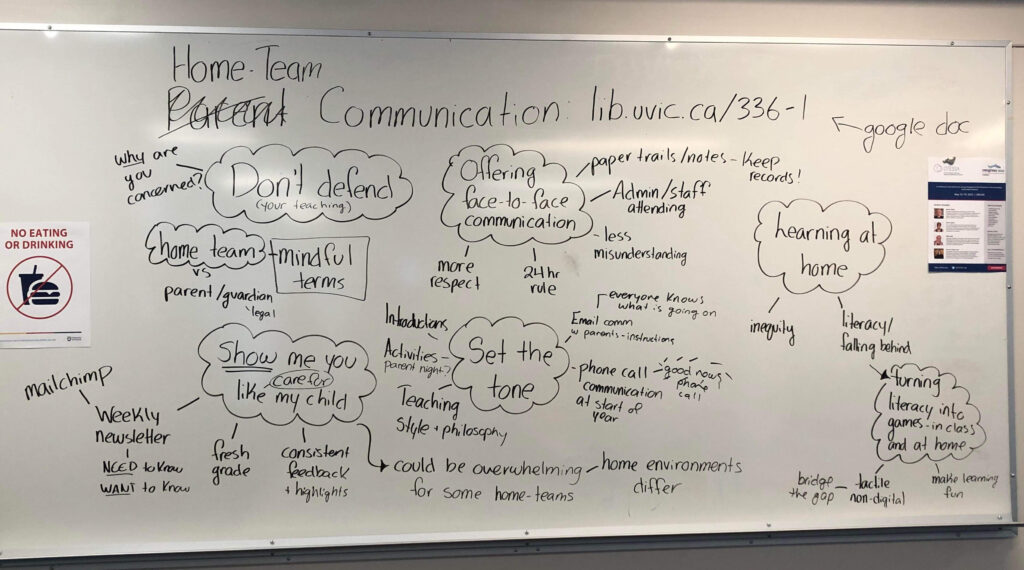 Home-Team
Parent Communication: lib.uvic.ca/336-1
google doc
Why are
you
concerned?
Don't defend
(your teaching)
home team
vs
parent/guardian
legal
mindful
terms
Offering
face-to-face
communication
paper trails/notes - Keep
records!
Admin/staff
attending
- less
misunderstanding
more
respect
24 hr
rule
Learning at
home
inequity
literacy/
falling behind
turning
literacy into
games-in class
and at home
bridge
the gap
tactile
non-digital
make learning
fun
Show me you
care for
like my child
mailchimp
Weekly
newsletter
NEED to know
WANT to know
fresh
grade
consistent
feedback
+ highlights
could be overwhelming
for some home-teams
home environments
differ
Set the
tone
Introductions
Activities -
parent night?
Teaching
Style + philosophy
everyone knows
what is going on
Email comm
w parents-instructions
- phone call
communication
at start of
year
good news
phone
call
NO EATING
OR DRINKING